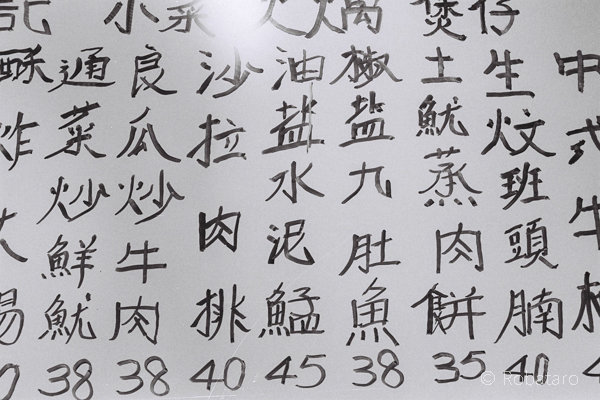 記小菜火煱煲仔
中式牛
生炆班頭腩 40
土魷蒸肉餅 35
椒盐九肚魚 38
油盐水泥鯭 45
沙拉肉排 40
良瓜炒牛肉 38
通菜炒鮮魷 38
酥炸大腸
© Robataro